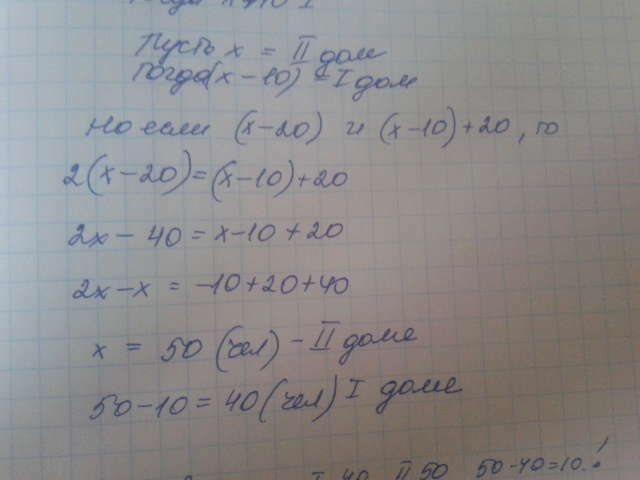 Пусть x = II дом
Тогда (x-10) = I дом
Но если (x-20) и (x-10)+20, то
2(x-20)=(x-10)+20
2x-40=x-10+20
2x-x = -10+20+40
x = 50 (чел) - II доме
50-10=40 (чел) I доме
I 40 II 50 50-40=10.!